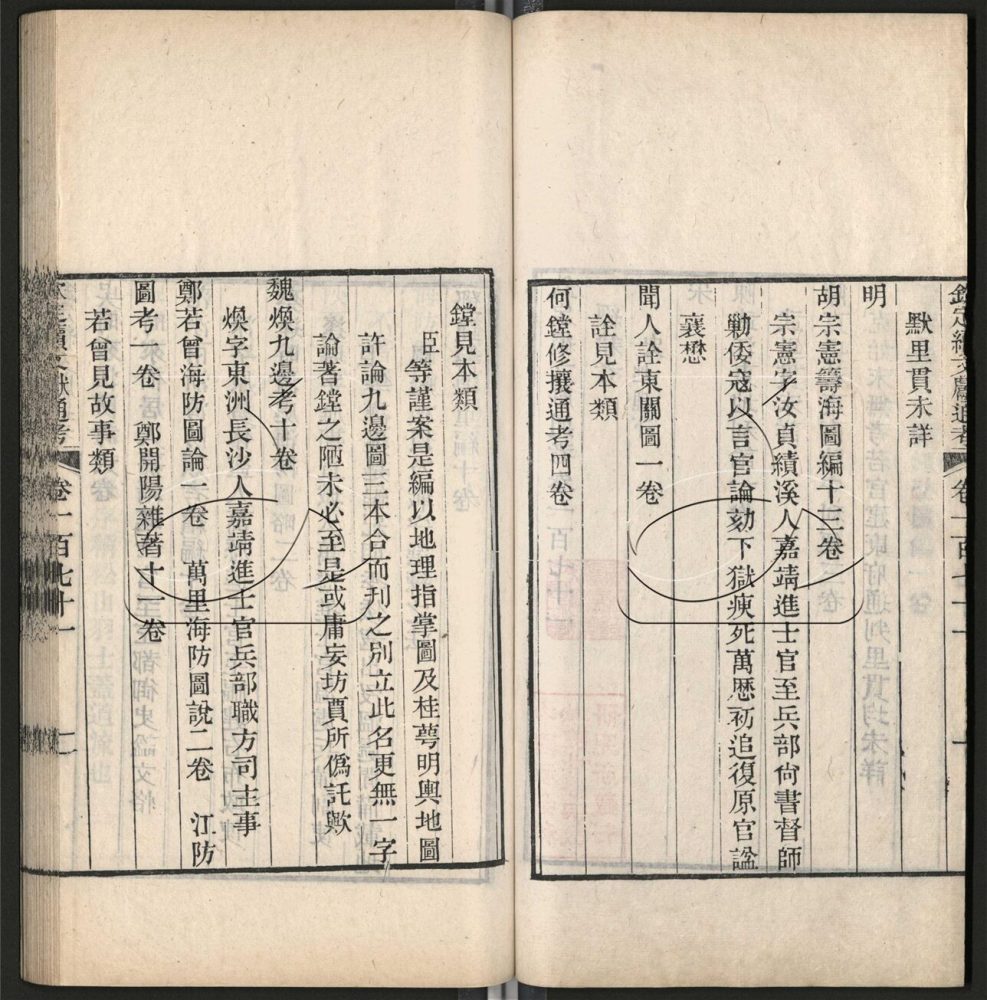 欽定續文獻通考 卷一百七十一
默里貫未詳
明
胡宗憲籌海圖編十三卷
宗憲字汝貞績溪人嘉靖進士官至兵部尙書督師
勦倭寇以言官論劾下獄瘐死萬厯初追復原官諡
襄懋
聞人詮東關圖一卷
詮見本類
何鏜修攘通考四卷
鏜見本類
臣等謹案是編以地理指掌圖及桂萼明輿地圖
許論九邊圖三本合而刊之別立此名更無一字
論著鏜之陋未必至是或庸妄坊賈所僞託歟
魏煥九邊考十卷
煥字東洲長沙人嘉靖進士官兵部職方司主事
鄭若曾海防圖論一卷 萬里海防圖說二卷 江防
圖考一卷 鄭開陽雜著十一卷
若曾見故事類